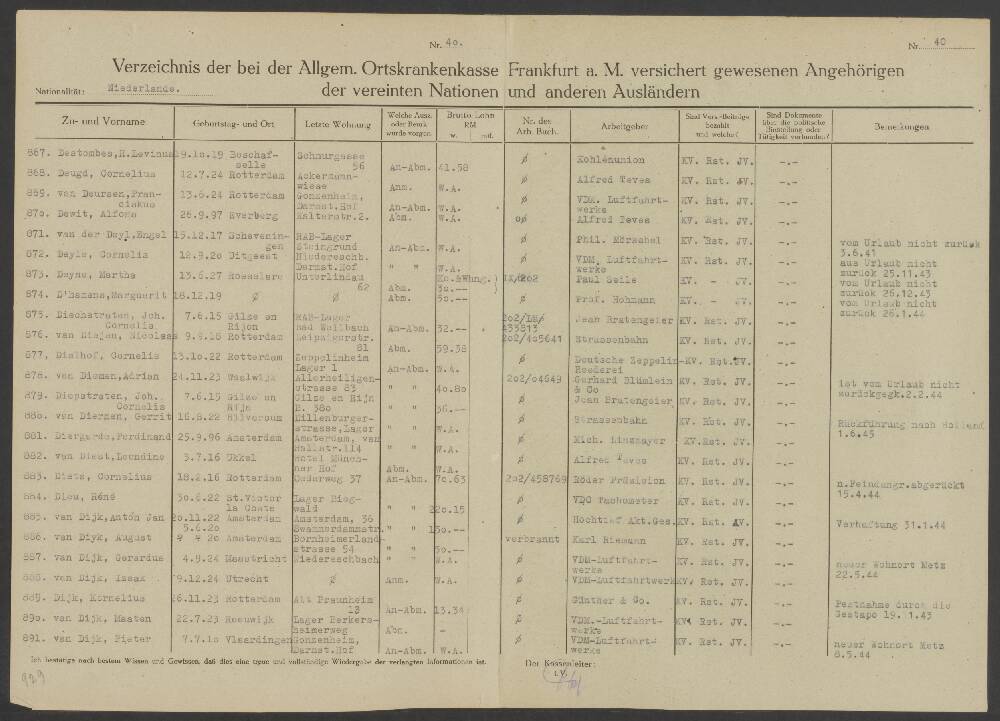 Nr. 40.
Nr. 40
Verzeichnis der bei der Allgem. Ortskrankenkasse Frankfurt a. M. versichert gewesenen Angehörigen
Nationalität: Niederlande. der vereinten Nationen und anderen Ausländern
Zu- und Vorname Geburtstag- und Ort Letzte Wohnung Welche Ausz. oder Bemk. wurde vorgen. Brutto Lohn RM w. mtl. Nr. des Arb. Buch. Arbeitgeber Sind Vers.-Beiträge bezahlt und welche? Sind Dokumente über die politische Einstellung oder Tätigkeit vorhanden? Bemerkungen
867. Destombes,H.Levinus 19.10.19 Boschaf- Schnurgasse Kohlenunion KV. Rst. JV. -.-
selle 56 An-Abm. 41.58
868. Deugd, Cornelius 12.7.24 Rotterdam Ackermann- ø Alfred Teves KV. Rst. JV. -.-
wiese Anm. W.A.
869. van Deursen,Fran- 13.6.24 Rotterdam Gonzenheim, ø VDM. Luftfahrt- KV. Rst. JV. -.-
ciskus Darmst.Hof An-Abm. W.A. werke
870. Dewit, Alfons 26.9.97 Everberg Kalterstr.2. Abm. W.A. Alfred Teves KV. Rst. JV. -.-
871. van der Deyl,Engel 15.12.17 Schevenin- RAB-Lager ø Phil. Mörschel KV. Rst. JV. -.- vom Urlaub nicht zurück
gen Steingrund An-Abm. W.A. 3.6.41
872. Deyle, Cornelia 12.9.20 Ditgeest Niedereschb. ø VDM. Luftfahrt- KV. Rst. JV. -.- aus Urlaub nicht
Darmst.Hof " " W.A. werke zurück 25.11.43
873. Deyne, Martha 13.6.27 Roeselare Unterlindau Ko.&Whng. Paul Seile KV. - JV. -.- vom Urlaub nicht
62 Abm. 30.-- zurück 26.12.43
874. D'hamens,Marguerit 18.12.19 ø ø Abm. 50.-- ø Prof. Hohmann KV. - JV. -.- vom Urlaub nicht
zurück 26.1.44
875. Diechstraten, Joh. 7.6.15 Gilze en RAB-Lager Jean Bratengeier KV. Rst. JV. -.-
Cornelis Rijen Bad Weilbach An-Abm. 32.-- 433813
876. van Diejen, Nicolaas 9.9.16 Rotterdam Leipzigerstr. 202/405641 Strassenbahn KV. Rst. JV. -.-
81 Abm. 59.38
877. Dielhof, Cornelis 13.10.22 Rotterdam Zeppelinheim ø Deutsche Zeppelin- KV. Rst. JV. -.-
Lager 1 An-Abm. W.A. Reederei
878. van Diemen,Adrian 24.11.23 Waalwijk Allerheiligen- 202/04649 Gerhard Blümlein KV. Rst. JV. -.- ist vom Urlaub nicht
strasse 83 " " 40.80 & Co zurückgegk.2.2.44
879. Diepstraten, Joh. 7.6.15 Gilze en Gilze en Rijn ø Jean Bratengeier KV. Rst. JV. -.-
Cornelis Rijn E. 380 " " 36.--
880. van Diermen, Gerrit 16.8.22 Hilversum Dillenburger- ø Strassenbahn KV. Rst. JV. -.- Rückführung nach Holland
strasse,Lager " " W.A. 1.6.43
881. Diergarde,Ferdinand 25.9.96 Amsterdam Amsterdam, van ø Mich. Linzmayer KV.Rst. JV. -.-
Hallstr.114 " " W.A.
882. van Diest,Leondine 3.7.16 Ukkel Hotel Münch- ø Alfred Teves KV. Rst. JV. -.-
ner Hof Abm. W.A.
883. Diets, Cornelius 18.2.16 Rotterdam Oederweg 37 An-Abm. 70.63 202/458769 Röder Präzision KV. Rst. JV. -.- n.Feindangr.abgerückt
15.4.44
884. Dieu, Réné 30.6.22 St.Victor Lager Rieg- ø VDO Tachometer KV. Rst. JV. -.-
la Coste wald " " 220.15
885. van Dijk,Antón Jan 20.11.22 Amsterdam Amsterdam, 36 ø Hochtief Akt.Ges. KV. Rst. JV. -.- Verhaftung 31.1.44
5.6.20 Swammerdammstr. " " 150.--
886. van Diyk, August 20 Amsterdam Bornheimerland- verbrannt Karl Riemann KV. Rst. JV. -.-
strasse 54 " " 50.--
887. van Dijk, Gerardus 4.9.24 Maastricht Niedereschbach " " W.A. ø VDM-Luftfahrt- KV. Rst. JV. -.- neuer Wohnort Metz
werke 22.5.44
888. van Dijk, Izaak 9.12.24 Utrecht ø Anm. W.A. ø VDM-Luftfahrtwerk KV. Rst. JV. -.-
889. Dijk, Kornelius 26.11.23 Rotterdam Alt Praunheim ø Günther & Co. KV. Rst. JV. -.- Festnahme durch die
13 An-Abm. 13.34 Gestapo 19.11.43
890. van Dijk, Maaten 22.7.23 Reeuwijk Lager Berkers- Abm. - ø VDM.-Luftfahrt- KV. Rst. JV. -.-
heimerweg werke
891. van Dijk, Pieter 7.7.10 Vlaardingen Gonzenheim, ø VDM-Luftfahrt- KV. Rst. JV. -.- neuer Wohnort Metz
Darmst.Hof An-Abm. W.A. werke 8.5.44
Ich bestätige nach bestem Wissen und Gewissen, daß dies eine treue und vollständige Wiedergabe der verlangten Informationen ist. Der Kassenleiter:
i.V.
929